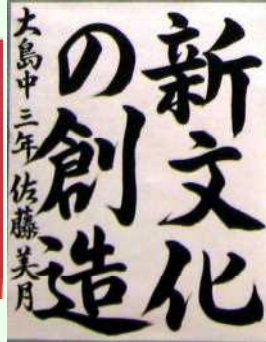 新文化
の創造
大島中三年佐藤美月